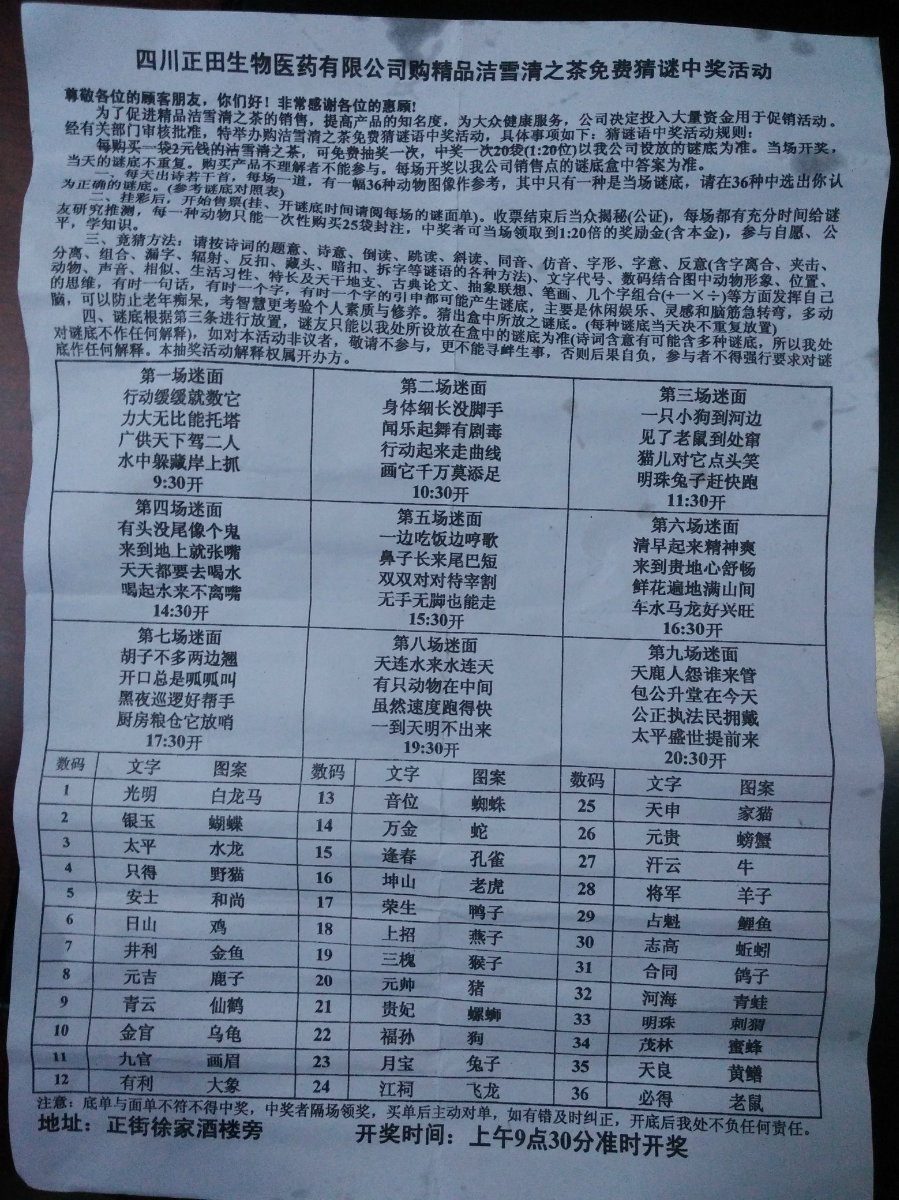 四川正田生物医药有限公司购精品洁雪清之茶免费猜谜中奖活动
尊敬各位的顾客朋友，你们好！非常感谢各位的惠顾！
为了促进精品洁雪清之茶的销售，提高产品的知名度，为大众健康服务，公司决定投入大量资金用于促销活动。
经有关部门审核批准，特举办购洁雪清之茶免费猜谜语中奖活动，具体事项如下：猜谜语中奖活动规则：
每购买一袋2元钱的洁雪清之茶，可免费抽奖一次，中奖一次20袋(1:20位)以我公司设放的谜底为准。当场开奖，
当天的谜底不重复。购买产品不理解者不能参与。每场开奖以我公司销售点的谜底盒中答案为准。
一、每天出诗若干首，每场一道，有一幅36种动物图像作参考，其中只有一种是当场谜底，请在36种中选出你认
为正确的谜底。(参考谜底对照表)
二、挂彩后，开始售票(挂、开谜底时间请阅每场的谜面单)。收票结束后当众揭秘(公证)，每场都有充分时间给谜
友研究推测，每一种动物只能一次性购买25袋封注，中奖者可当场领取到1:20倍的奖励金(含本金)，参与自愿、公
平，学知识。
三、竟猜方法：请按诗词的题意、诗意、倒读、跳读、斜读、同音、仿音、字形、字意、反意(含字离合、夹击、
分离、组合、漏字、辐射、反扣、藏头、暗扣、拆字等谜语的各种方法)、文字代号、数码结合图中动物形象、位置、
动物、声音、相似、生活习性、特长及天干地支、古典论文、抽象联想、笔画、几个字组合(+一×÷)等方面发挥自己
的思维，有时一句话，有时一个字，有时一个字的引申都可能产生谜底，主要是休闲娱乐、灵感和脑筋急转弯，多动
脑，可以防止老年痴呆，考智慧更考验个人素质与修养。猜出盒中所放之谜底。(每种谜底当天决不重复放置)
四、谜底根据第三条进行放置，谜友只能以我处所设放在盒中的谜底为准(诗词含意有可能含多种谜底，所以我处
对谜底不作任何解释)，如对本活动非议者，敬请不参与，更不能寻衅生事，否则后果自负，参与者不得强行要求对谜
底作任何解释。本抽奖活动解释权属开办方。
第一场迷面
行动缓缓就数它
力大无比能托塔
广供天下驾二人
水中躲藏岸上抓
9:30开
第二场迷面
身体细长没脚手
闻乐起舞有剧毒
行动起来走曲线
画它千万莫添足
10:30开
第三场迷面
一只小狗到河边
见了老鼠到处窜
猫儿对它点头笑
明珠兔子赶快跑
11:30开
第四场迷面
有头没尾像个鬼
来到地上就张嘴
天天都要去喝水
喝起水来不离嘴
14:30开
第五场迷面
一边吃饭边哼歌
鼻子长来尾巴短
双双对对待宰割
无手无脚也能走
15:30开
第六场迷面
清早起来精神爽
来到贵地心舒畅
鲜花遍地满山间
车水马龙好兴旺
16:30开
第七场迷面
胡子不多两边翘
开口总是呱呱叫
黑夜巡逻好帮手
厨房粮仓它放哨
17:30开
第八场迷面
天连水来水连天
有只动物在中间
虽然速度跑得快
一到天明不出来
19:30开
第九场迷面
天鹿人怨谁来管
包公升堂在今天
公正执法民拥戴
太平盛世提前来
20:30开
数码 文字 图案 数码 文字 图案 数码 文字 图案
1 光明 白龙马 13 音位 蜘蛛 25 天申 家猫
2 银玉 蝴蝶 14 万金 蛇 26 元贵 螃蟹
3 太平 水龙 15 逢春 孔雀 27 汗云 牛
4 只得 野猫 16 坤山 老虎 28 将军 羊子
5 安士 和尚 17 荣生 鸭子 29 占魁 鲤鱼
6 日山 鸡 18 上招 燕子 30 志高 蚯蚓
7 井利 金鱼 19 三槐 猴子 31 合同 鸽子
8 元吉 鹿子 20 元帅 猪 32 河海 青蛙
9 青云 仙鹤 21 贵妃 螺蛳 33 明珠 刺猬
10 金官 乌龟 22 福孙 狗 34 茂林 蜜蜂
11 九官 画眉 23 月宝 兔子 35 天良 黄鳝
12 有利 大象 24 江祠 飞龙 36 必得 老鼠
注意：底单与面单不符不得中奖，中奖者隔场领奖，买单后主动对单，如有错及时纠正，开底后我处不负任何责任。
地址：正街徐家酒楼旁 开奖时间：上午9点30分准时开奖